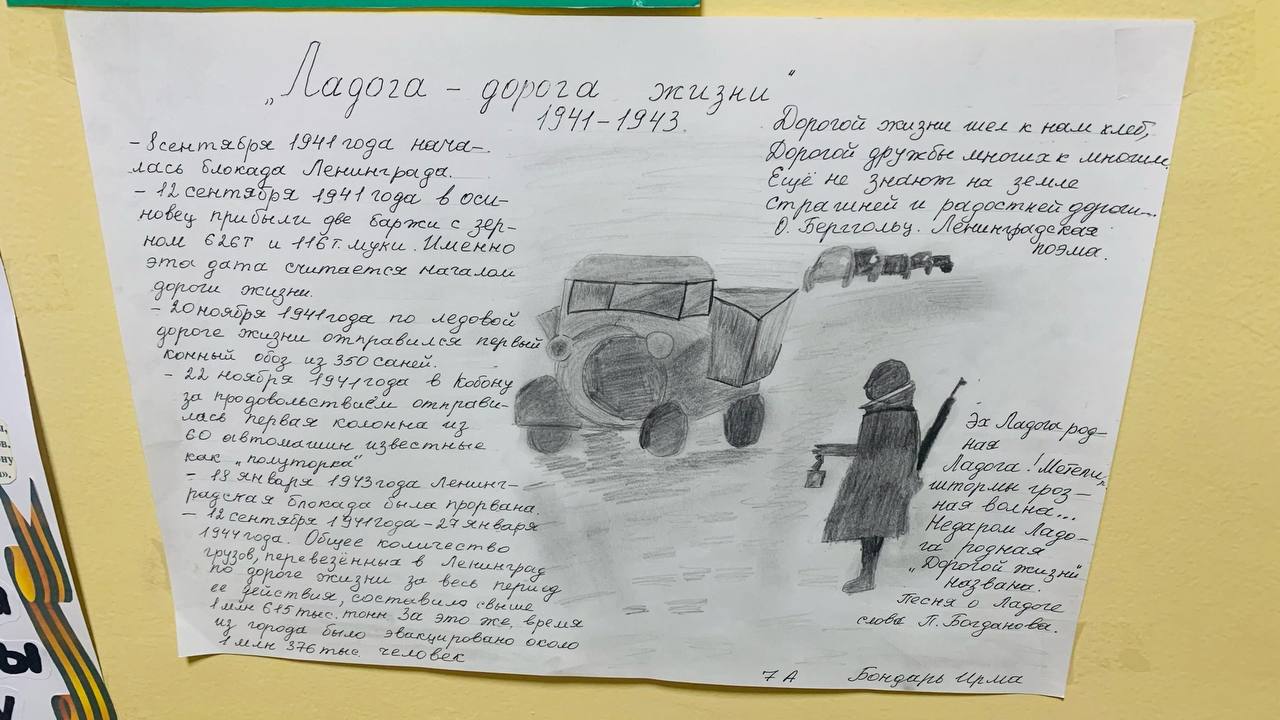 „Ладога – дорога жизни"
1941–1943.
– 8 сентября 1941 года нача-
лась блокада Ленинграда.
– 12 сентября 1941 года в оси-
новец прибыли две баржи с зер-
ном 626т и 116т. муки. Именно
эта дата считается началом
дороги жизни.
– 20 ноября 1941 года по ледовой
дороге жизни отправился первый
конный обоз из 350 саней.
– 22 ноября 1941 года в Кобону
за продовольствием отправи-
лась первая колонна из
60 автомашин известные
как „полуторка"
– 18 января 1943 года Ленинг-
радская блокада была прорвана.
– 12 сентября 1941 года – 27 января
1944 года. Общее количество
грузов, перевезённых в Ленинград
по дороге жизни за весь период
её действия, составило свыше
1 млн 615 тыс. тонн За это же, время
из города было эвакуировано около
1 млн 376 тыс. человек
Дорогой жизни шел к нам хлеб,
Дорогой дружбы многих к многим.
Ещё не знают на земле
страшней и радостней дороги...
О. Берггольц. Ленинградская
поэма.
Эх Ладога род-
ная
Ладога! Метели,
штормы гроз-
ная волна...
Недаром Ладо-
га родная
„Дорогой жизни"
названа.
Песня о Ладоге
слова П. Богданова.
7 А Бондарь Ирма